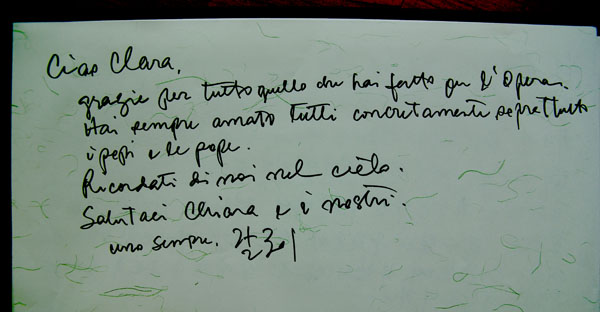 Ciao Clara,
grazie per tutto quello che hai fatto per l'Opera.
Hai sempre amato tutti concretamente soprattutto
i popi e le pope.
Ricordati di noi nel cielo.
Salutaci Chiara e i nostri.
uno sempre.